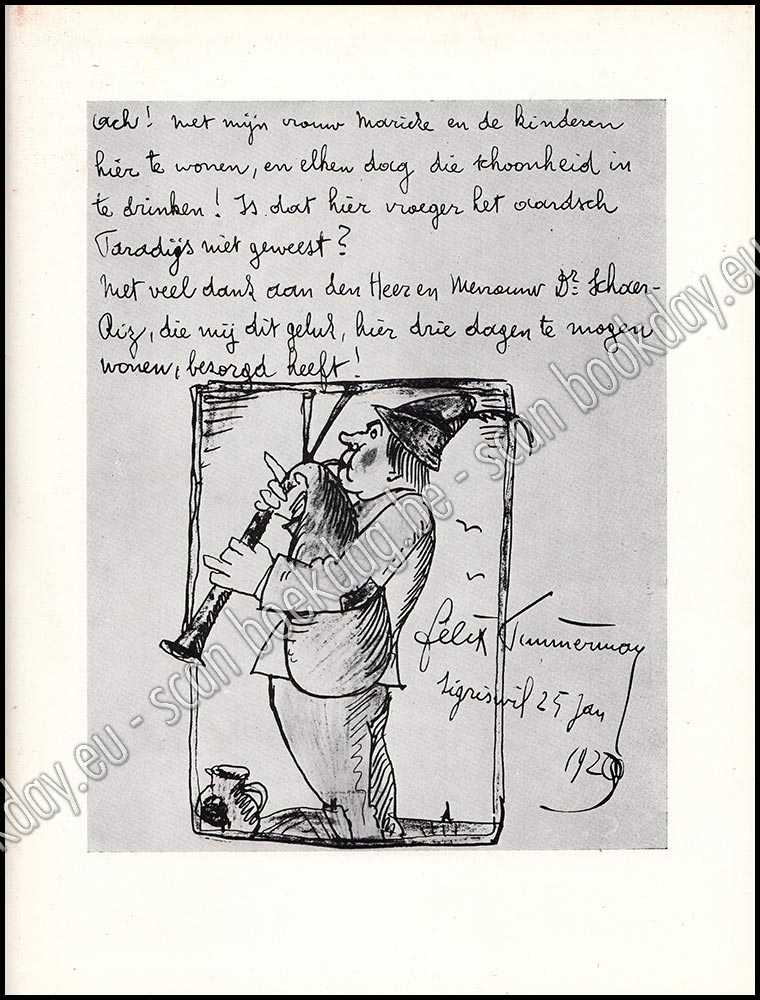 Ach! Met mijn vrouw Marieke en de kinderen
hier te wonen, en elken dag die schoonheid in
te drinken! Is dat hier vroeger het aardsch
Paradijs niet geweest?
Met veel dank aan den Heer en Mevrouw Dr Schaer-
Riz, die mij dit geluk, hier drie dagen te mogen
wonen, bezorgd heeft!
Félix Timmermans
Sigriswil 25 Jan
bookday.eu - scan bookdag.be - scan bookday.eu